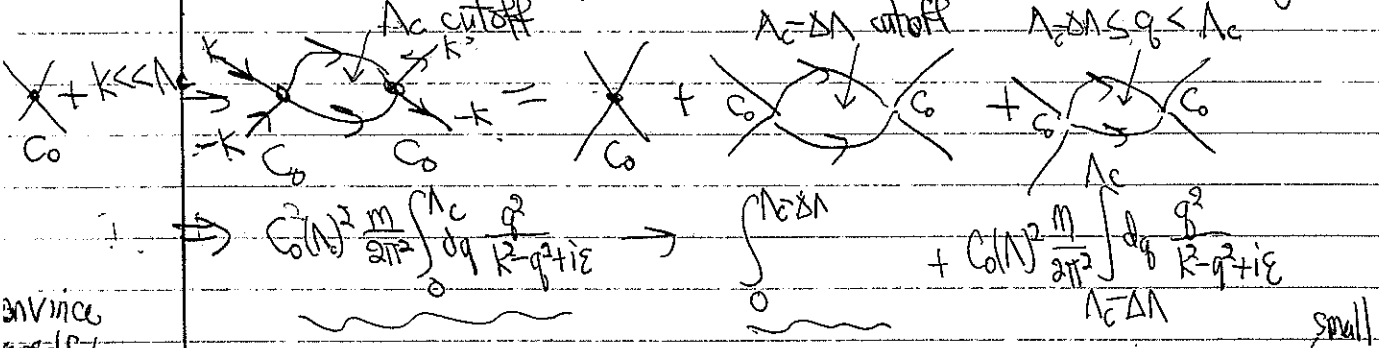 Λc cutoff Λc-ΔΛ cutoff Λc-ΔΛ ≤ q < Λc
+ k<<Λc k k' = + C₀ C₀ + C₀ C₀
C₀ -k C₀ C₀ -k C₀
⇒ C₀²(Λ)² m/2π² ∫₀^Λc dq q²/(k²-q²+iε) → ∫₀^Λc-ΔΛ + C₀(Λ)² m/2π² ∫_Λc-ΔΛ^Λc dq q²/(k²-q²+iε)
small